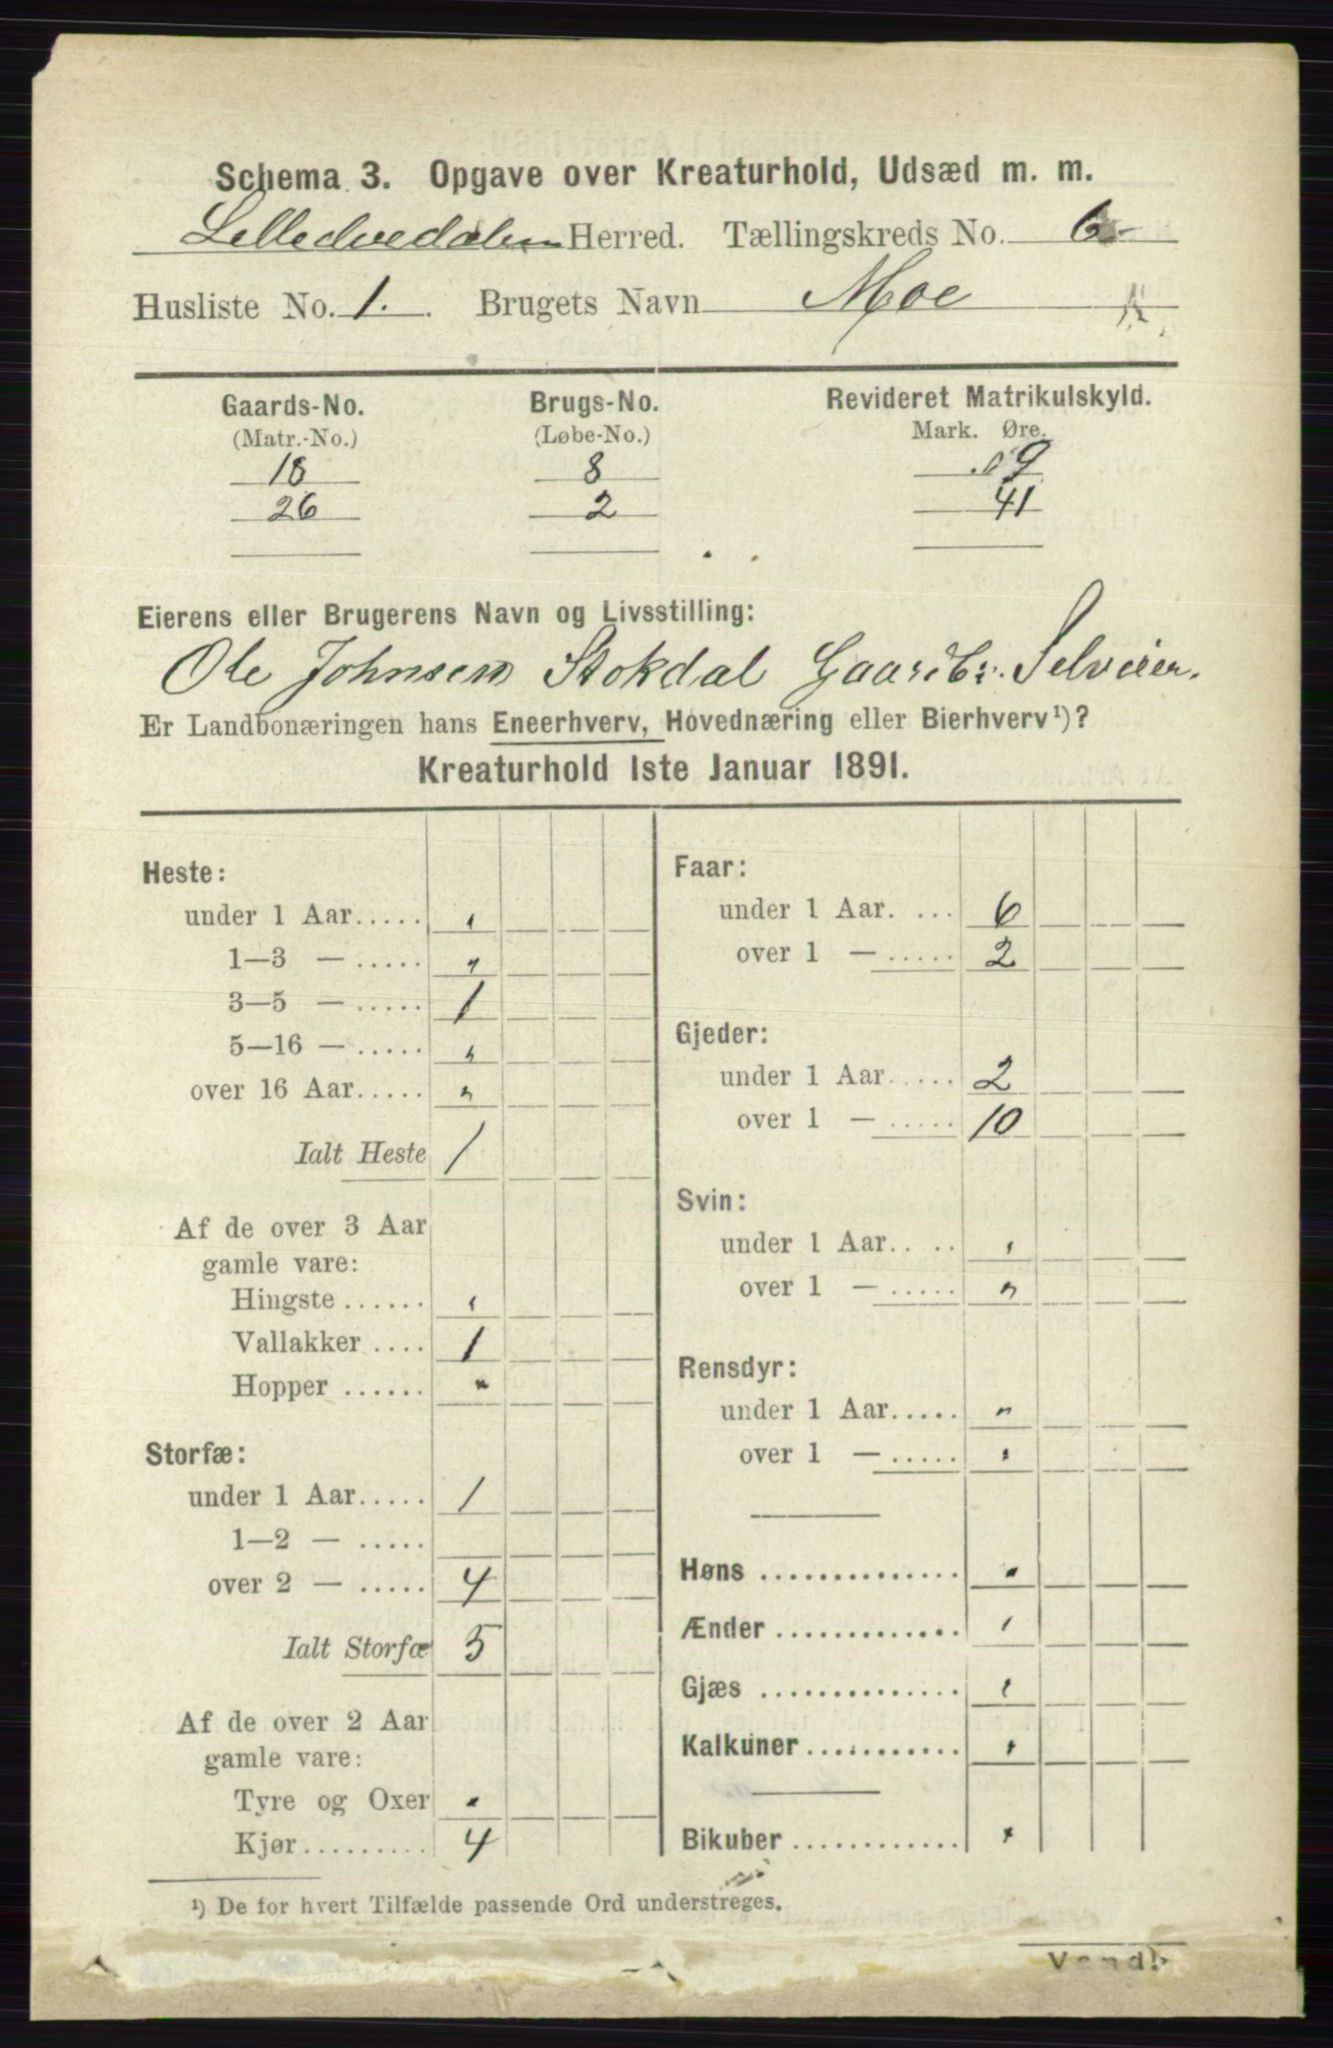 Schema 3. Opgave over Kreaturhold, Udsæd m. m.
Lilledvedalen Herred. Tællingskreds No. 6
Husliste No. 1. Brugets Navn Moe
Gaards-No. Brugs-No. Revideret Matrikulskyld.
(Matr.-No.) (Løbe-No.) Mark. Øre.
18 8 09
26 2 41
Eierens eller Brugerens Navn og Livsstilling:
Ole Johnsen Stokdal Gaardbr. Selveier.
Er Landbonæringen hans Eneerhverv, Hovednæring eller Bierhverv¹)?
Kreaturhold 1ste Januar 1891.
Heste:
under 1 Aar..... "
1—3 — ..... "
3—5 — ..... 1
5—16 — ..... "
over 16 Aar..... "
Ialt Heste 1
Af de over 3 Aar
gamle vare:
Hingste ...... "
Vallakker .... 1
Hopper ...... "
Storfæ:
under 1 Aar..... 1
1—2 — .....
over 2 — ..... 4
Ialt Storfæ 5
Af de over 2 Aar
gamle vare:
Tyre og Oxer "
Kjør......... 4
Faar:
under 1 Aar. ... 6
over 1 — ..... 2
Gjeder:
under 1 Aar..... 2
over 1 — ..... 10
Svin:
under 1 Aar.. .. "
over 1 — ..... "
Rensdyr:
under 1 Aar..... "
over 1 — ..... "
Høns .............. "
Ænder ............. "
Gjæs .............. "
Kalkuner........... "
Bikuber ............ "
¹) De for hvert Tilfælde passende Ord understreges.
Vend!